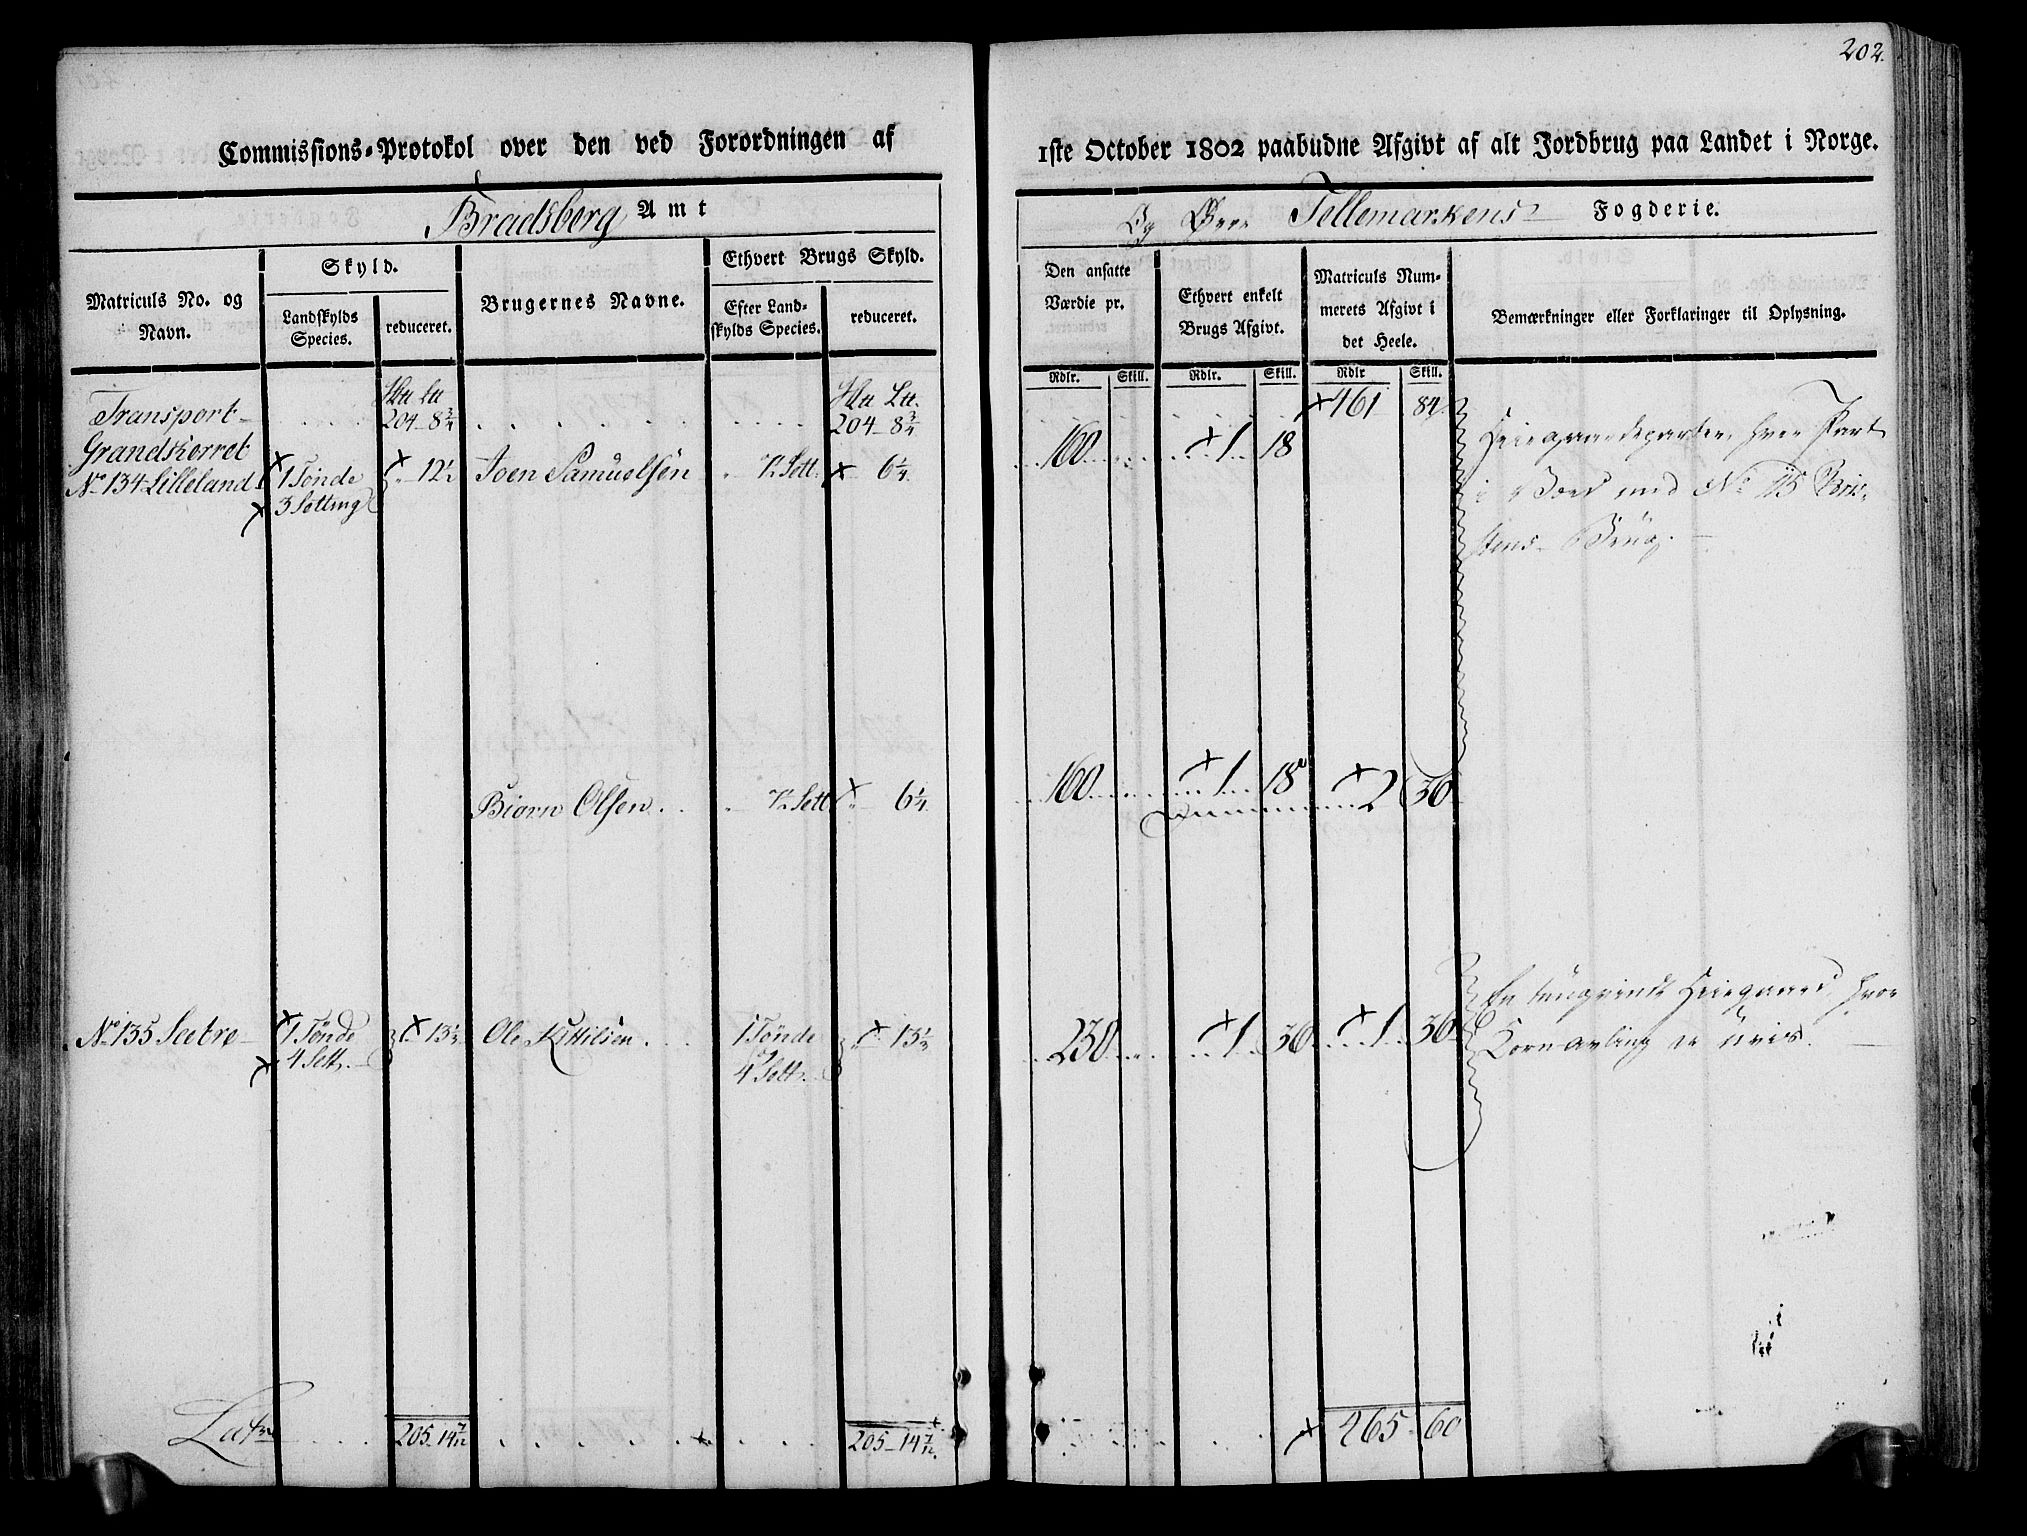 202.
Commissions-Protokol over den ved Forordningen af
1ste October 1802 paabudne Afgivt af alt Jordbrug paa Landet i Norge.
Bradsberg Amt
Og Øvre Tellemarkens Fogderie.
Matriculs No. og Navn.
Skyld.
Landskylds Species.
reduceret.
Brugernes Navne.
Ethvert Brugs Skyld.
Efter Land-
skylds Species.
reduceret.
Den ansatte
Værdie pr.
Ethvert enkelt
Brugs Afgivt.
Matriculs Num-
merets Afgivt i
det Heele.
Bemærkninger eller Forklaringer til Oplysning.
Rdlr. Skill. Rdlr. Skill. Rdlr Skill.
Transport 204 8 3/4 204 8 3/4 461 84
Grandskerret
No 134 Lilleland 1 Tønde 12 1/2 Joen Samuelsen 7 1/2 Sett. 6 1/4 160 1 18
3 Setting
i Boer med No 115
Brüg.
Biørn Olsen 7 1/2 Sett 6 1/4 160 1 18 2 36
No 135 Seetre 1 Tønde 13 1/3 Ole Kittilsen 1 Tønde 13 1/3 230 1 36 1 36 En tungvindt Heiegaard, hvor
4 Sett. 4 Sett. Kornavling er üvis.
Lat. 205 14 7/12 205 14 7/12 465 60